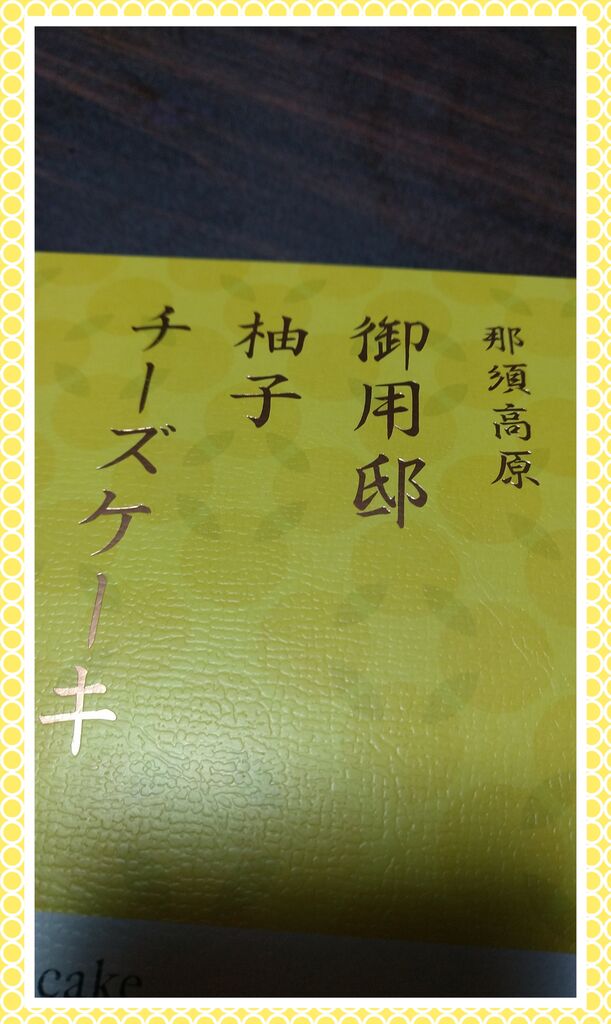 那須高原
御用邸
柚子
チーズケーキ
cake